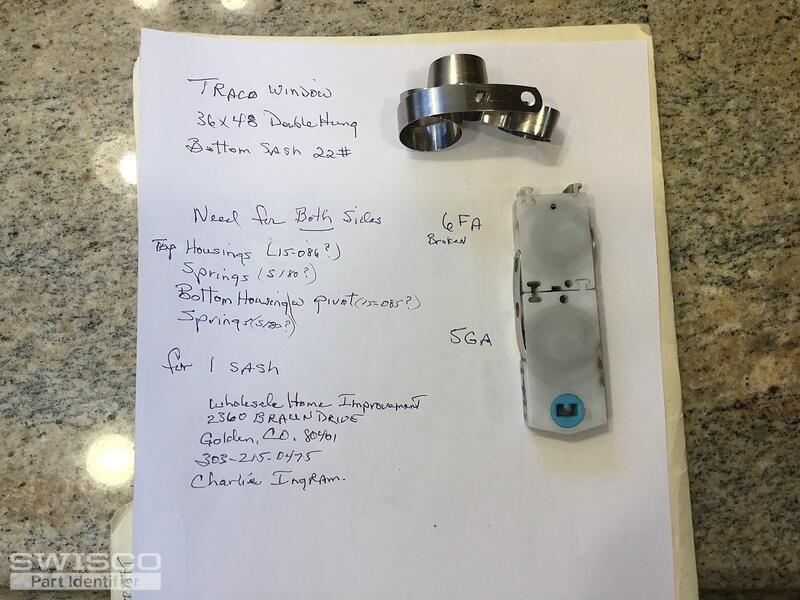 TRACO WINDOW
36x48 Double Hung
Bottom SASH 22#
Need for Both Sides
Top Housings (15-086?)
Springs (S180?)
Bottom Housing w pivot (15-085?)
Springs (S180?)
for 1 SASH
Wholesale Home Improvement
2360 BRAUN DRIVE
Golden, CO. 80401
303-215-0475
Charlie Ingram.
6FA
Broken
5GA
SWISCO
Part Identifier